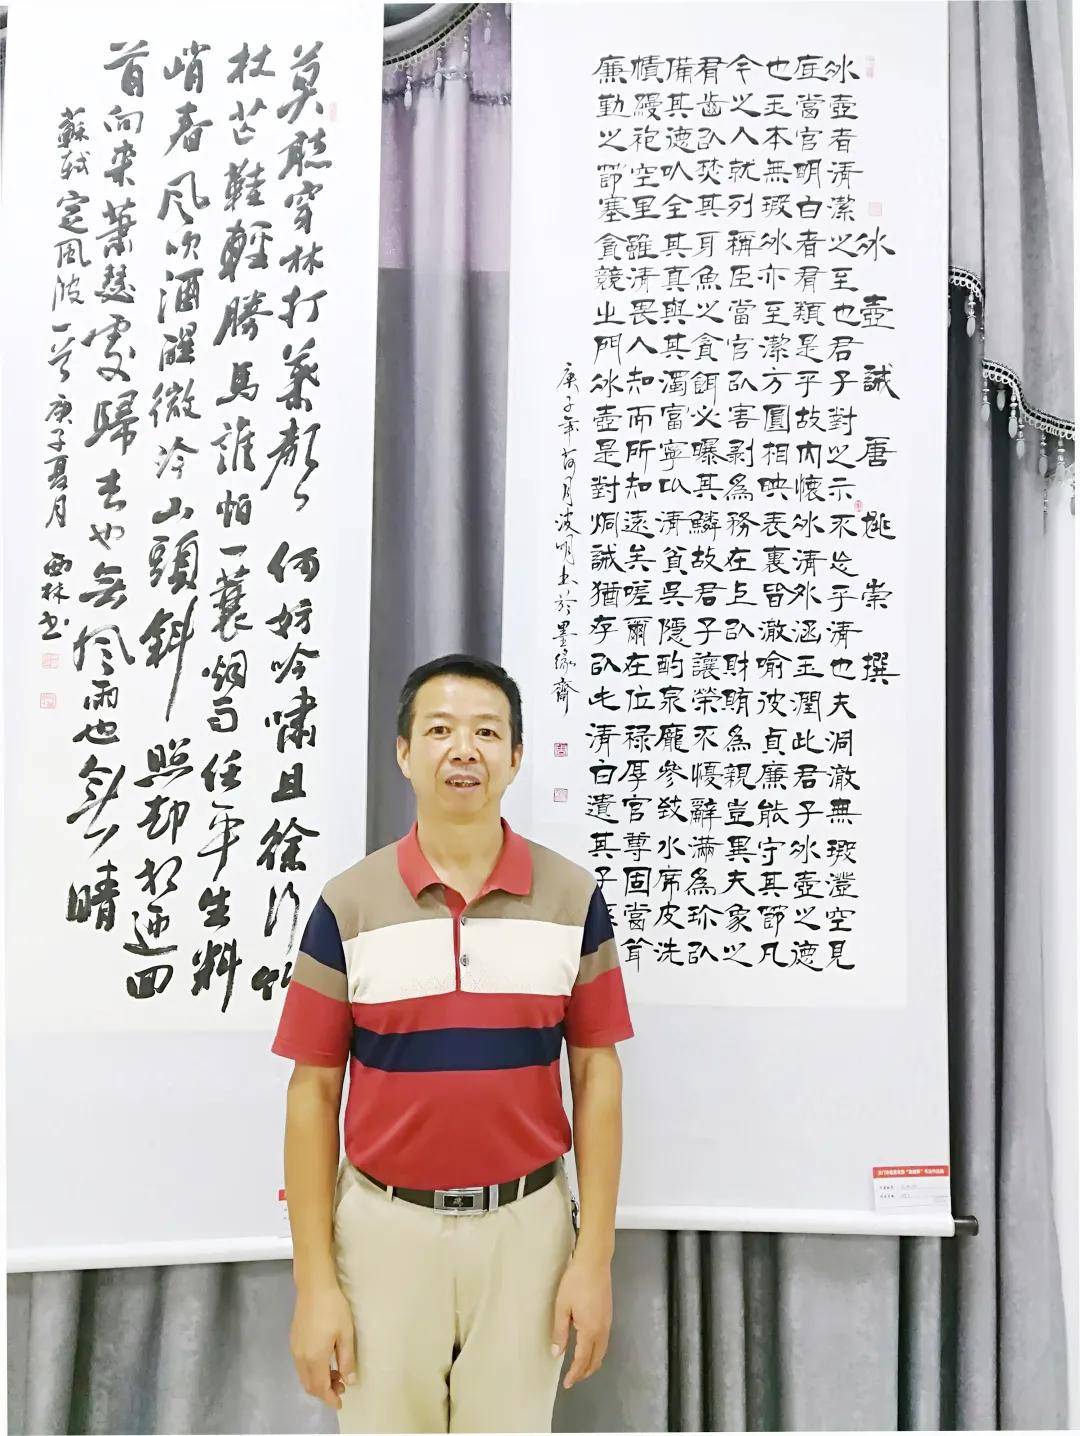 冰壺誡 唐 姚崇 撰
冰壺者清潔之至也君子對之示不忘乎清也夫洞澈無瑕澄空見
底當官明白者有類是乎故內懷冰清外涵玉潤此君子冰壺之德
也玉本無瑕冰亦至潔方圓相映表裏皆澈喻彼貞廉能守其節凡
今之人就列稱臣當官以害剥為務在上以財賄為親豈異夫象之
有齒以焚其身魚之貪餌必曝其鱗故君子讓榮不憂辭滿為珍以
備其德以全其真與其濁富寧以清貧吳隱酌泉龐參致水席皮洗
幘縵袍空里雖清畏人知而所知遠矣嗟爾在位祿厚官尊固當聳
廉勤之節塞貪競之門冰壺是對炯誡猶存以此清白遺其子孫
庚子年荷月波明書於墨緣齋
莫聽穿林打葉聲何妨吟嘯且徐行竹
杖芒鞋輕勝馬誰怕一蓑烟雨任平生料
峭春風吹酒醒微冷山頭斜照却相迎回
首向來蕭瑟處歸去也無風雨也無晴
蘇軾定風波一首庚子夏月西林書